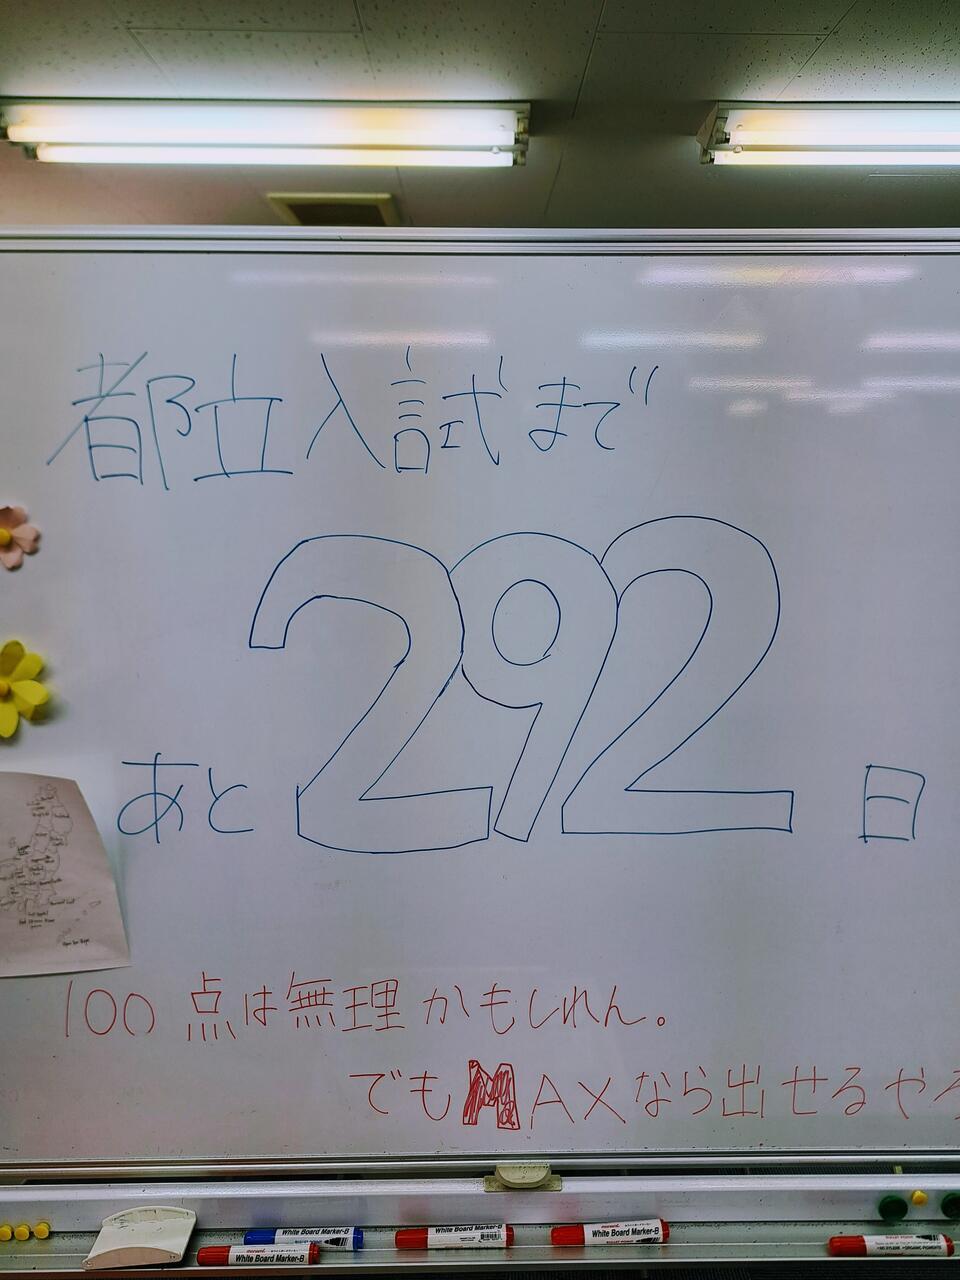 都立入試まで
あと 292 日
100点は無理かもしれん。
でもMAXなら出せるやろ
White Board Marker-B
White Board Marker-B
White Board Marker-B
White Board Marker-B